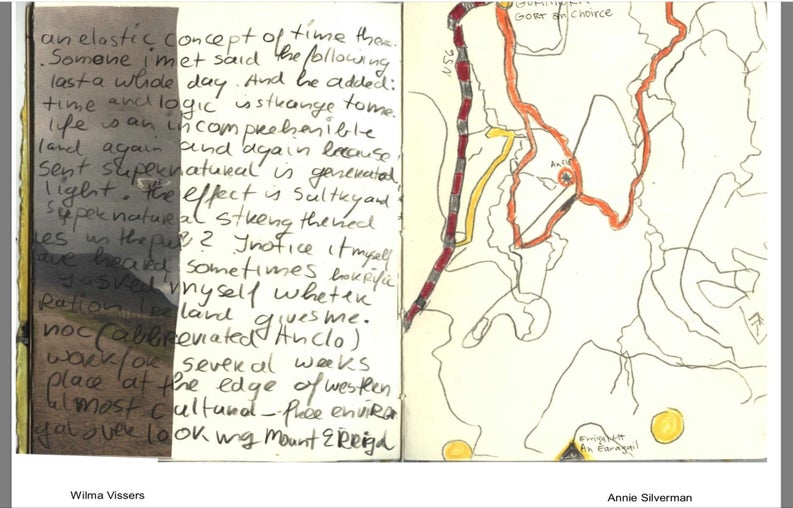 an elastic concept of time there.
Somone i met said the following
last a whole day. And he added:
time and logic is strange to me.
life is an incomprehenible
land again and again because
sent supernatural is generated
light. The effect is sultry and
supernatural strengthened
es in the pub? I notice it myself
ave heard sometimes horrific
I asked myself wheter
Ration Ireland gives me.
noc (abbreviated An Clo)
work/or several weeks
place at the edge of western
almost cultural-free enviro
gal overlooking Mount Ereigal
GORT an Choirce
N56
An Clo
Errigal Mt
An Earagail
Wilma Vissers
Annie Silverman